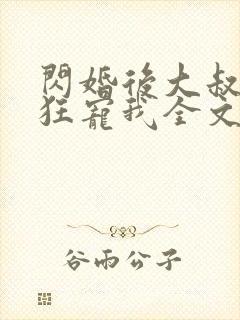 閃婚後大叔
狂寵我全文
谷雨公子